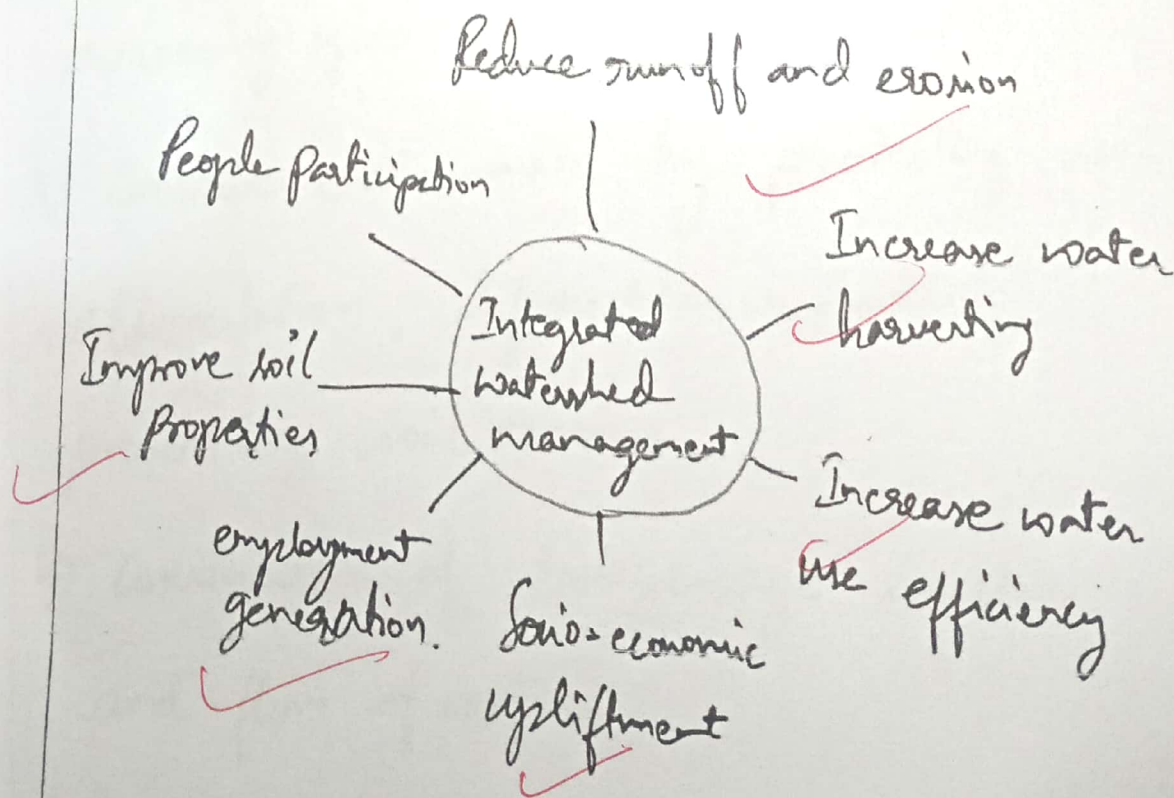 Reduce runoff and erosion
People participation
Increase water
harvesting
Integrated
watershed
management
Improve soil
properties
Increase water
use efficiency
employment
generation.
Socio-economic
upliftment